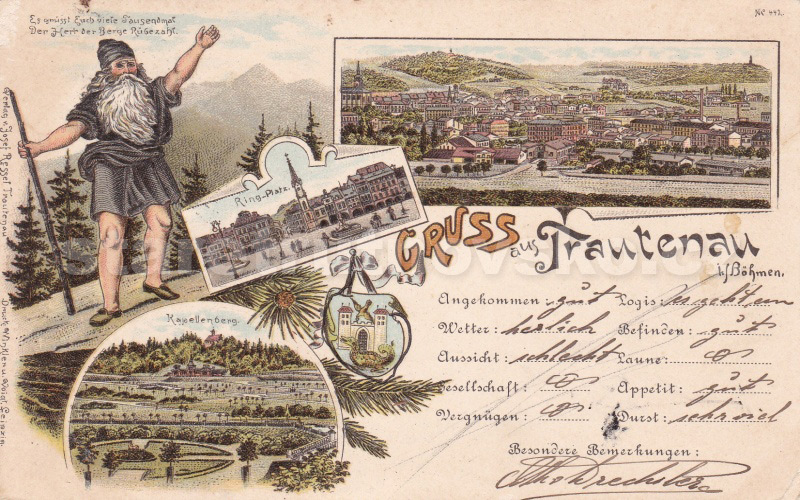 Es grüsst Euch viele Tausendmal
Der Herr der Berge Rübezahl.
No 442.
Verlag v. Josef Ressel Trautenau
Ring-Platz.
GRUSS aus Trautenau
i/Böhmen.
Angekommen: gut Logis:
Wetter: herlich Befinden: gut
Aussicht: schlecht Laune: 0
Gesellschaft: 0 Appetit: gut
Vergnügen: 0 Durst: sehr viel
Besondere Bemerkungen:
Kapellenberg.
Druck Winkler u. Voigt, Leipzig.